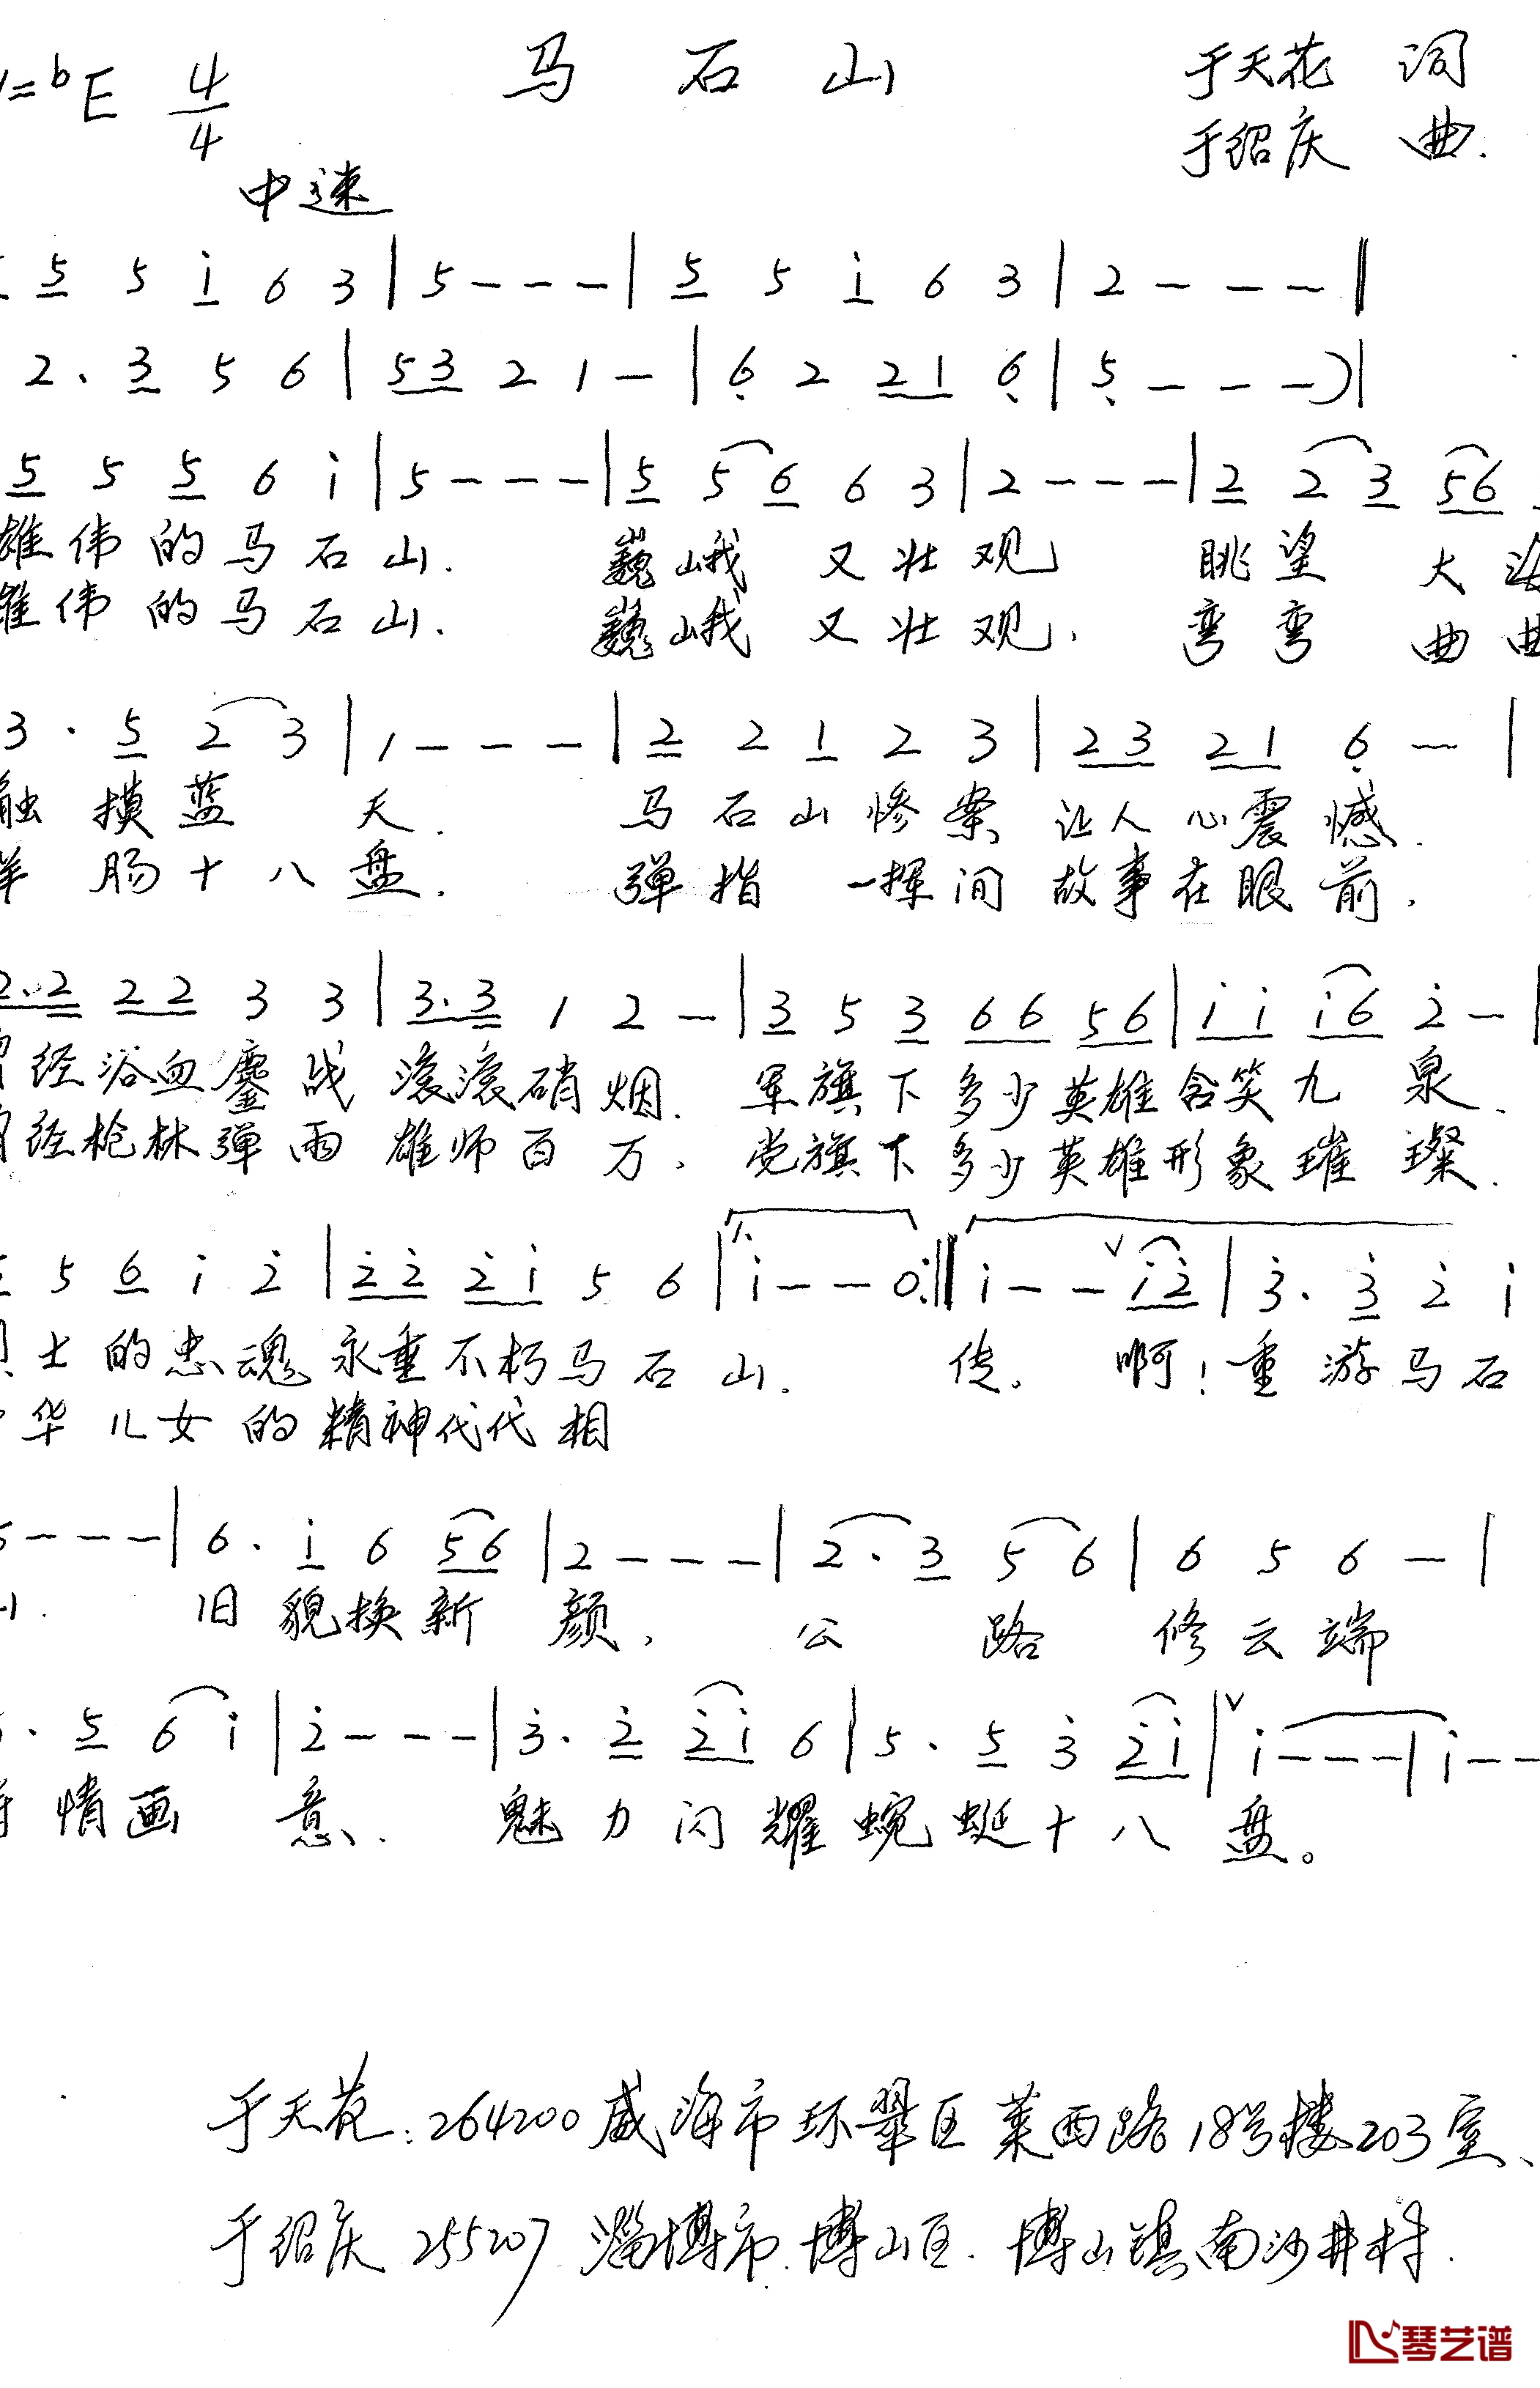 马石山
1=♭E 4/4
于天花 词
于绍庆 曲.
中速
5 5 i 6 3 | 5 - - - | 5 5 i 6 3 | 2 - - - ‖
2. 3 5 6 | 53 2 1 - | 6 2 21 6 | 5 - - - ) |
5 5 5 6 i | 5 - - - | 5 5 6 6 3 | 2 - - - | 2 2 3 56
雄伟的马石山. 巍峨又壮观 眺望大海
雄伟的马石山. 巍峨又壮观. 弯弯曲曲
3 · 5 2 3 | 1 - - - | 2 2 1 2 3 | 23 21 6 - |
触摸蓝天. 马石山惨案 让人心震憾.
羊肠十八盘. 弹指一挥间 故事在眼前.
2.2 22 3 3 | 3.3 1 2 - | 3 5 3 66 56 | i i i6 2 - |
经浴血鏖战 滚滚硝烟. 军旗下多少英雄含笑九泉.
经枪林弹雨 雄师百万. 党旗下多少英雄形象璀璨.
5 6 i 2 | 22 2i 5 6 | 1. i - - 0 :‖ i - - i2 | 3. 3 2 i
士的忠魂永垂不朽马石山. 传。啊！重游马石
华儿女的精神代代相
5 - - - | 6. i 6 56 | 2 - - - | 2. 3 5 6 | 6 5 6 - |
山. 旧貌换新颜. 公路修云端
. 5 6 i | 2 - - - | 3. 2 2i 6 | 5. 5 3 2i | i - - - | i - -
诗情画意. 魅力闪耀蜿蜒十八盘。
于天花:264200威海市环翠区莱西路18号楼203室、
于绍庆 255207 淄博市.博山区.博山镇南沙井村.
琴艺谱